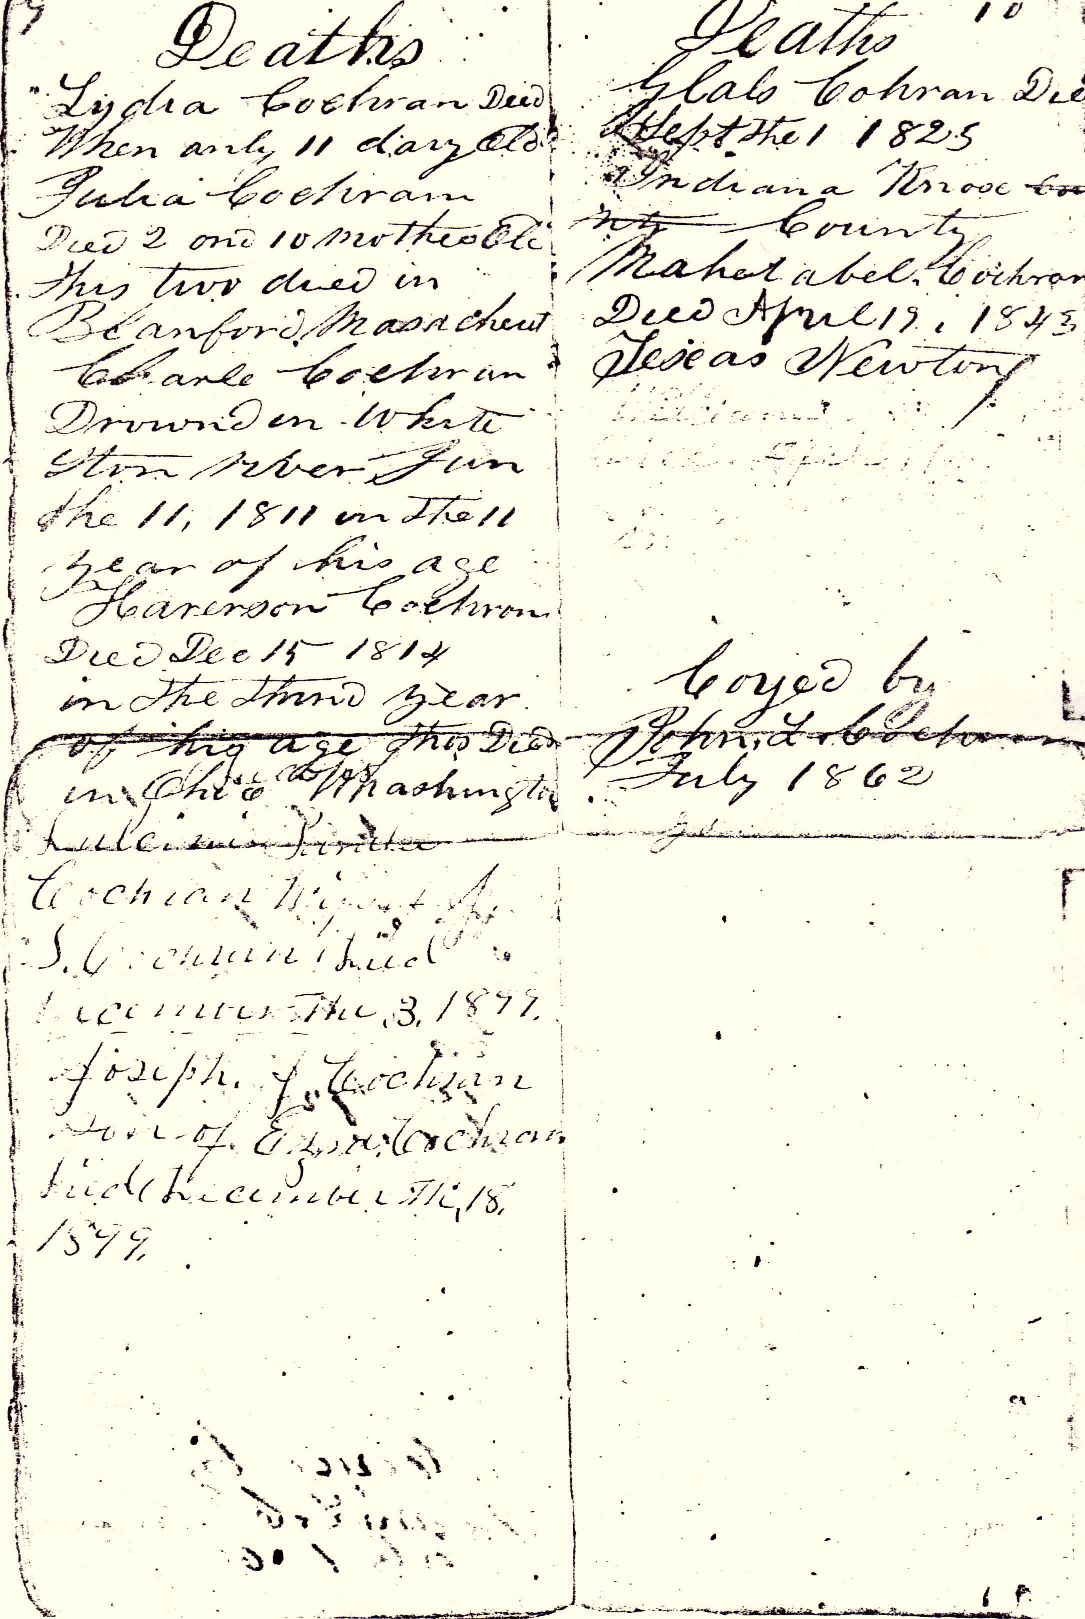 9
Deaths
Lydia Cochran Died
When only 11 day Old
Julia Cochram
Died 2 and 10 mothes Old
this two died in
Blanford, Masacheut
Charle Cochran
Drownd in White
ston river Jun
the 11, 1811 in the 11
year of his age
Harerson Cochron
Died Dec 15 1814
in the third year
of his age this Died
in Ohio Whashington
Cochran
S. Cochran Died
December The, 3, 1899.
Joseph. J. Cochran
son of. Ezra, Cochran
Died December Th, 18,
1899.
10
Deaths
Cohran Die
Sept the 1 1825
Indiana Knox Cou
nty County
Mahetabel. Cochran
Died April 19, 1843
Texas Newton
Coyed by
John. L. Cochran
July 1862